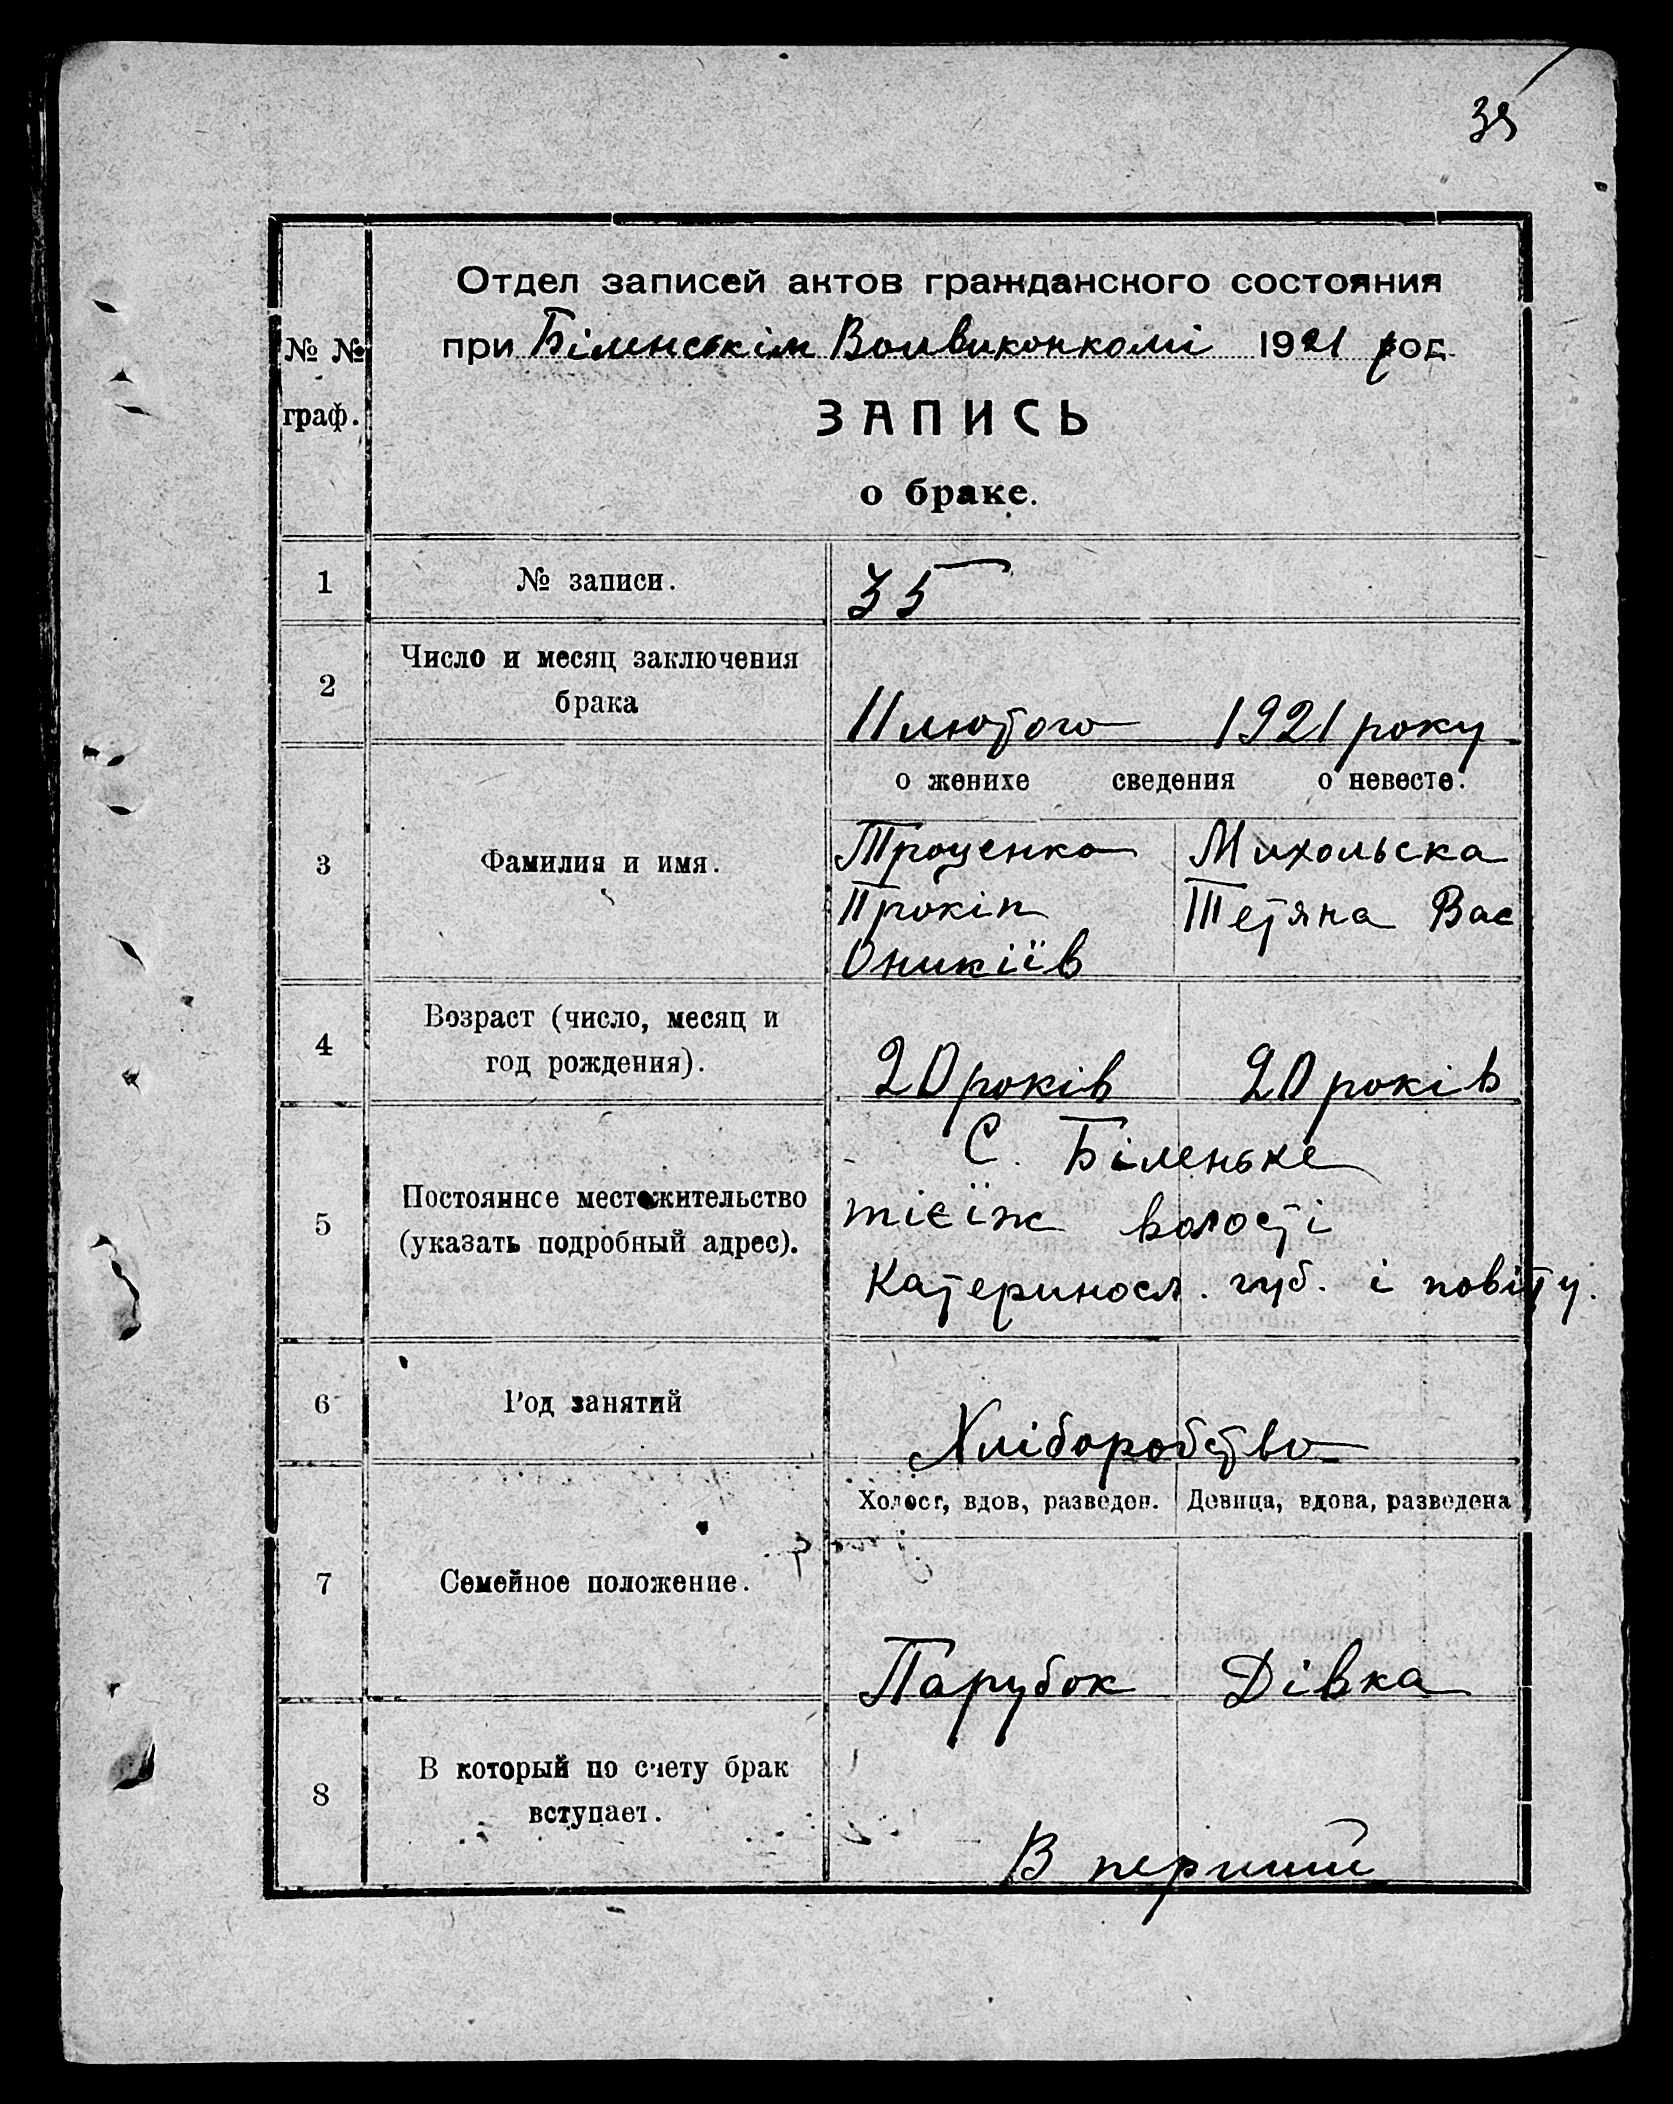 35
Отдел записей актов гражданского состояния
при Біленськім Волвиконкомі 1921 рог
№ №
граф.
ЗАПИСЬ
о браке.
1 № записи. 35
2 Число и месяц заключения
брака
11 лютого 1921 року
о женихе сведения о невесте.
3 Фамилия и имя.
Троценко Михольска
Прокіп Тетяна Вас
Оникіїв
4 Возраст (число, месяц и
год рождения).
20 років 20 років
5 Постоянное местожительство
(указать подробный адрес).
С. Біленьке
тієїж волості
Катериносл. губ. і повіту.
6 Род занятий
Хліборобство
Холост, вдов, разведен. Девица, вдова, разведена
7 Семейное положение.
Парубок Дівка
8 В который по счету брак
вступает.
В перший